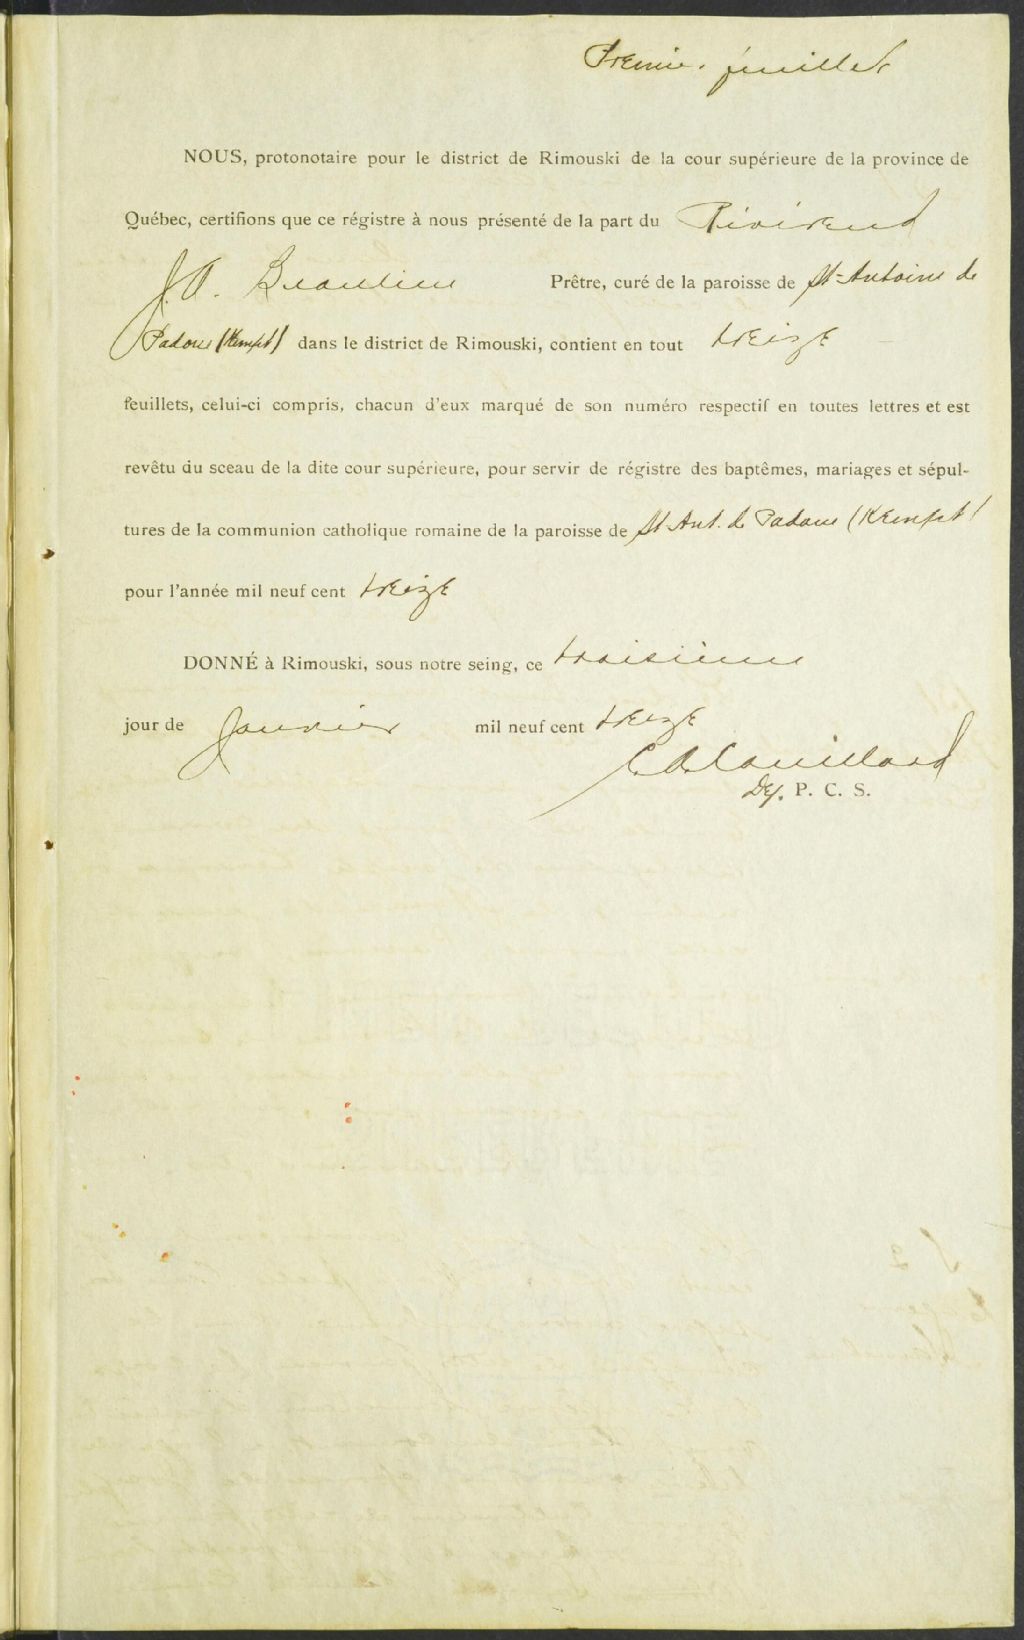 Premier feuillet
NOUS, protonotaire pour le district de Rimouski de la cour supérieure de la province de
Québec, certifions que ce régistre à nous présenté de la part du Révérend
J. A. Beaulieu Prêtre, curé de la paroisse de St-Antoine de
Padoue (Kempt) dans le district de Rimouski, contient en tout treize
feuillets, celui-ci compris, chacun d'eux marqué de son numéro respectif en toutes lettres et est
revêtu du sceau de la dite cour supérieure, pour servir de régistre des baptêmes, mariages et sépul-
tures de la communion catholique romaine de la paroisse de St Ant. de Padoue (Kempt)
pour l'année mil neuf cent treize
DONNÉ à Rimouski, sous notre seing, ce troisième
jour de Janvier mil neuf cent treize
Couillard
Dep. P. C. S.